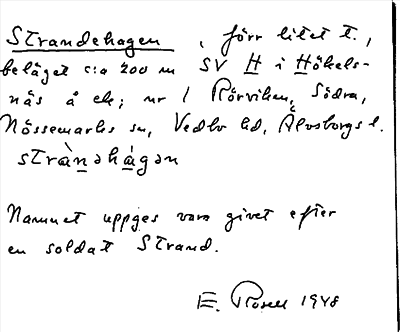 Strandehagen, förr litet t.,
beläget c:a 200 m SV H i Hökels-
näs å ek; nr 1 Rörviken, Södra,
Nössemarks sn, Vedbo hd, Älvsborgs l.
stràn̲əhá̲gən
Namnet uppges vara givet efter
en soldat Strand.
E. Rosell 1948